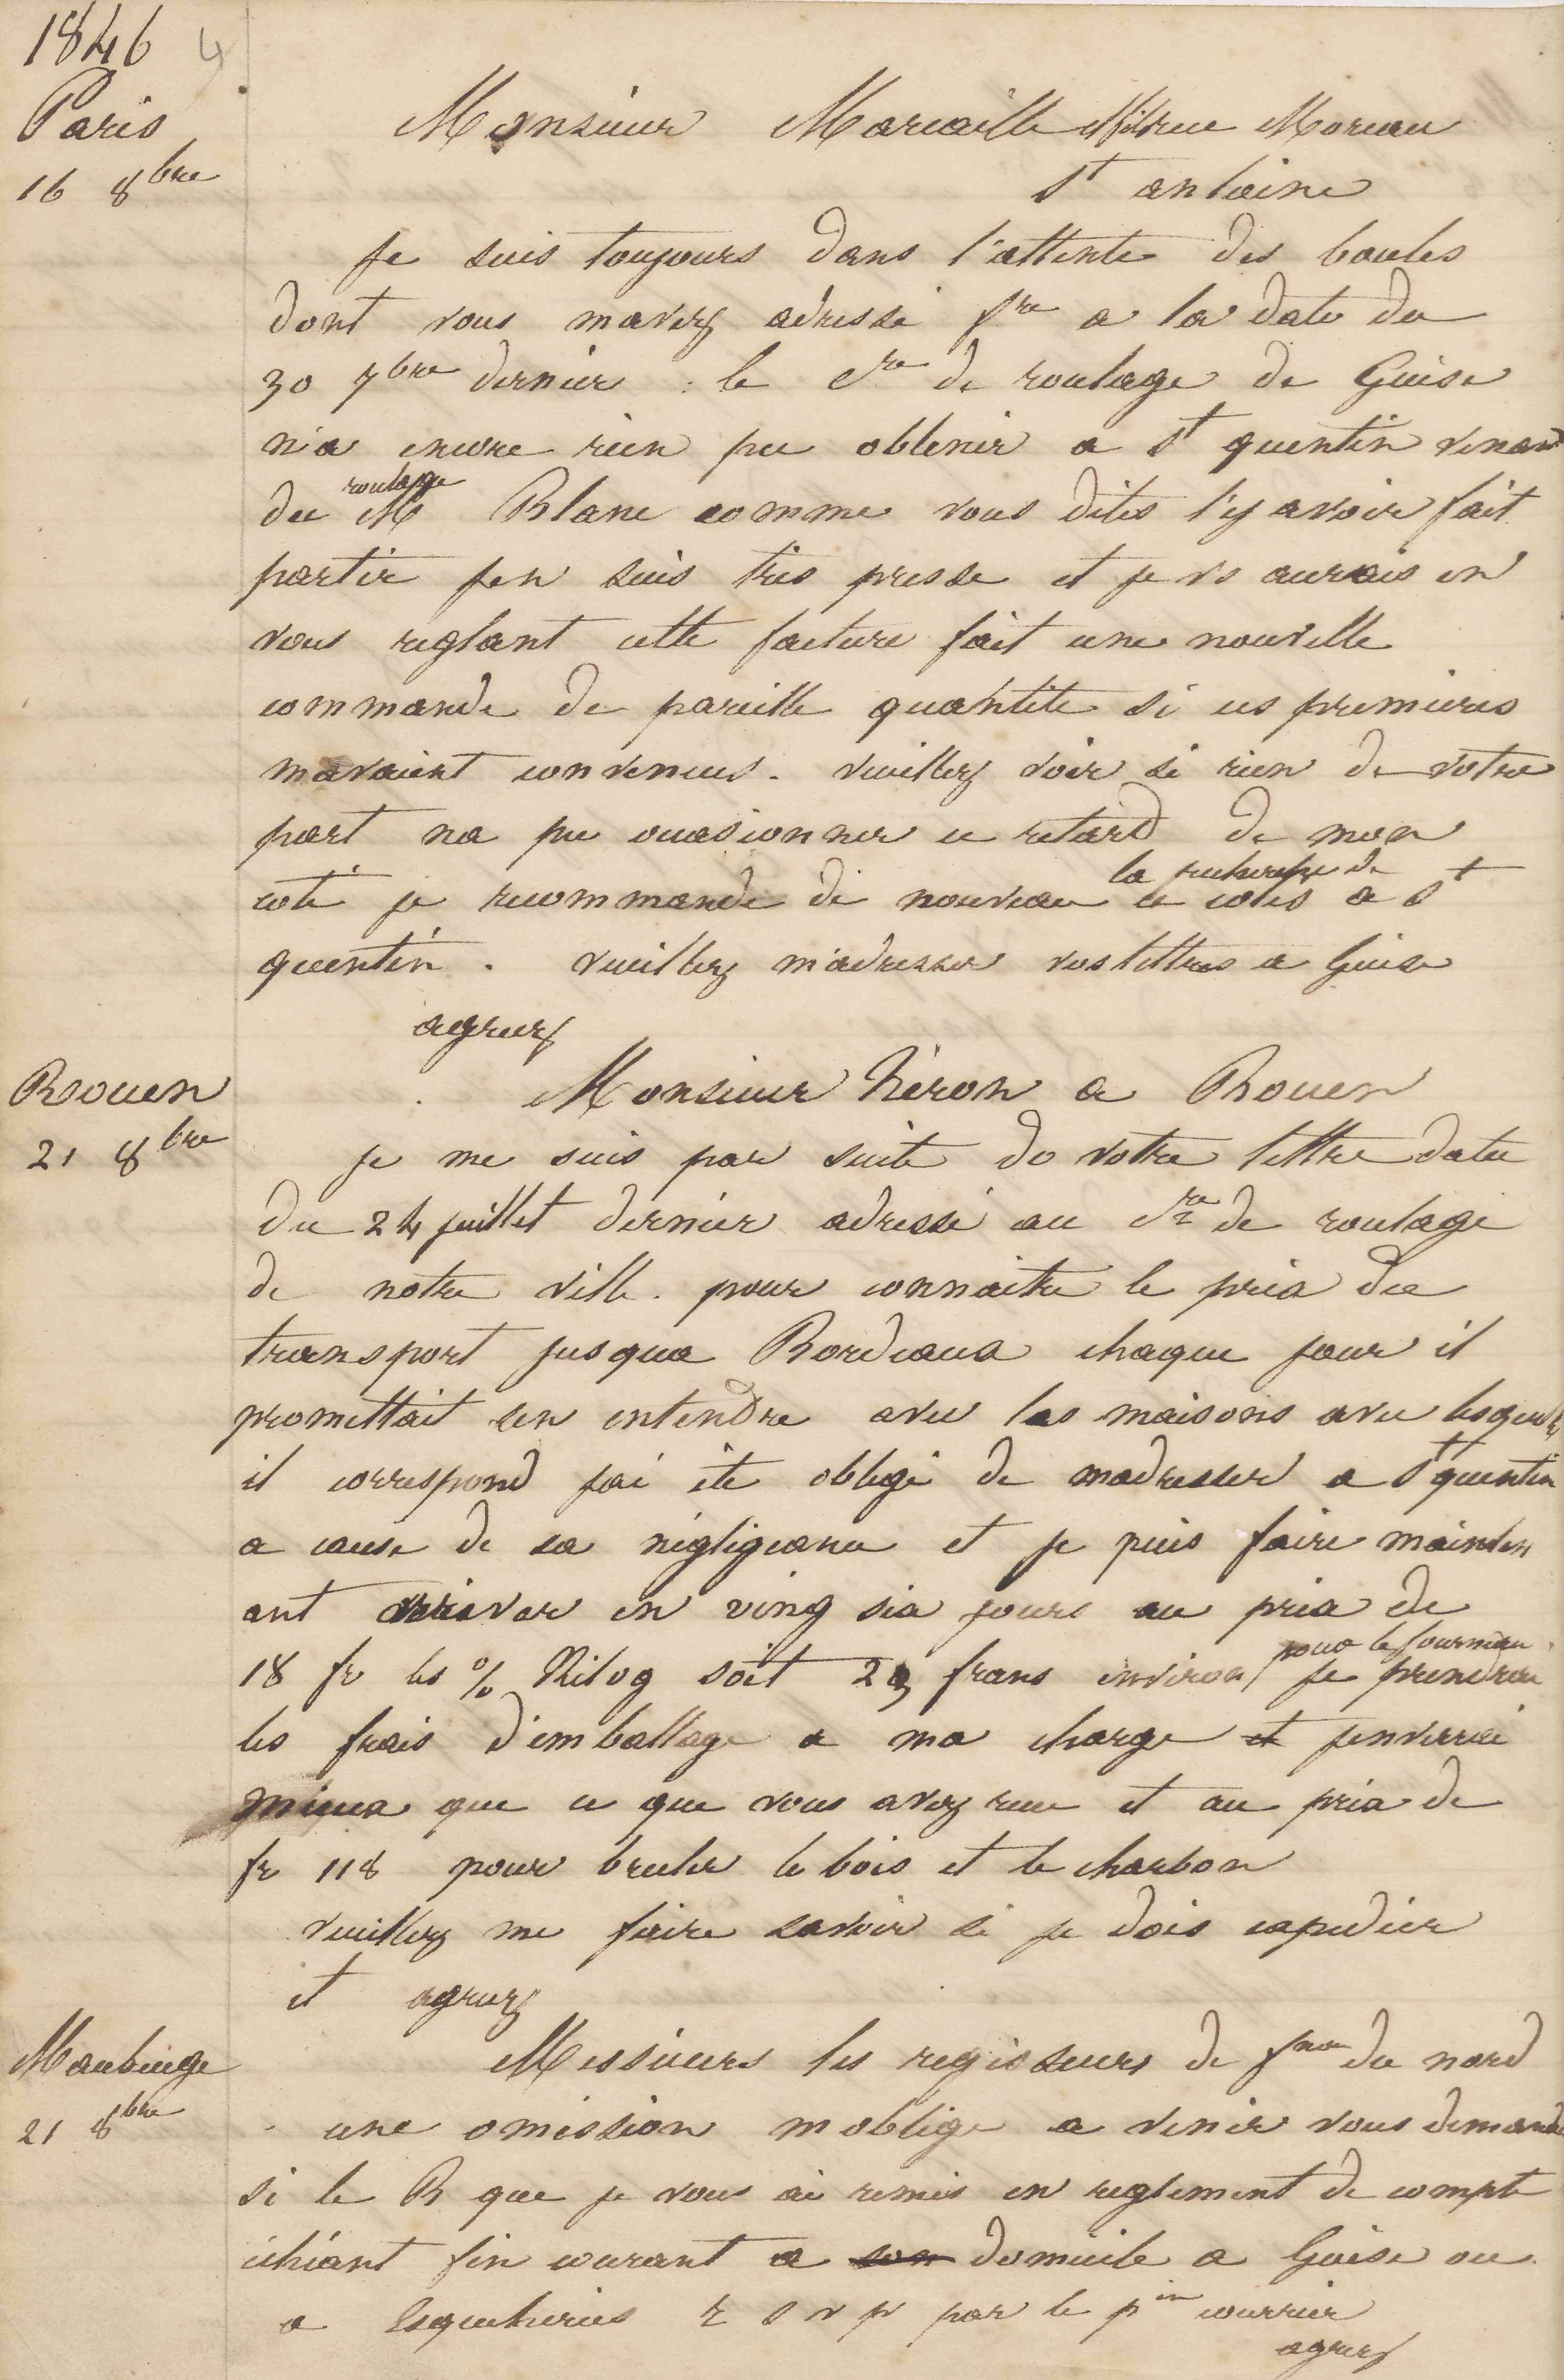 1846 4
Paris
16 8bre
Monsieur Marcaille rue Moreau
St antoine
Je suis toujours dans l'attente des boules
dont vous mavez adressé fre a la date du
30 7bre dernier. le Cre de roulage de Guise
n'a encore rien pu obtenir a St quentin venant
roulage
du M Blanc comme vous dites l'y avoir fait
partir jen suis très pressé et je vs aurais en
vous reglant cette facture fait une nouvelle
commande de pareille quantité si ces premieres
mavaient convenues. veuillez voir si rien de votre
part na pu occasionner ce retard de mon
la recherche de
coté je recommande de nouveau ce colis a St
quentin. veuillez m'adresser vos lettres a Guise
agreez
Rouen
21 8bre
Monsieur Néron a Rouen
je me suis par suite de votre lettre datée
du 24 juillet dernier adressé au Cre de roulage
de notre ville. pour connaitre le prix du
transport jusqua Bordeaux chaque jour il
promettait sen entendre avec les maisons avec lesquelles
il correspond jai été obligé de madresser a St quentin
a cause de sa négligeance et je puis faire mainten
ant arriver en ving six jours au prix de
pour le fourneau
18 fr les % Kilog soit 23 francs environ je prendrai
les frais d'emballage a ma charge et jenverrai
mieux que ce que vous avez reçu et au prix de
fr 118 pour bruler le bois et le charbon
veuillez me faire savoir si je dois expedier
et agreez
Maubeuge
21 8bre
Messieurs les regisseurs de fnon du nord
une omission moblige a venir vous demander
si le B que je vous ai remis en reglement de compte
échéant fin courant a son domicile a Guise ou
a Esqueheries r s v p par le pin courrier
agreez